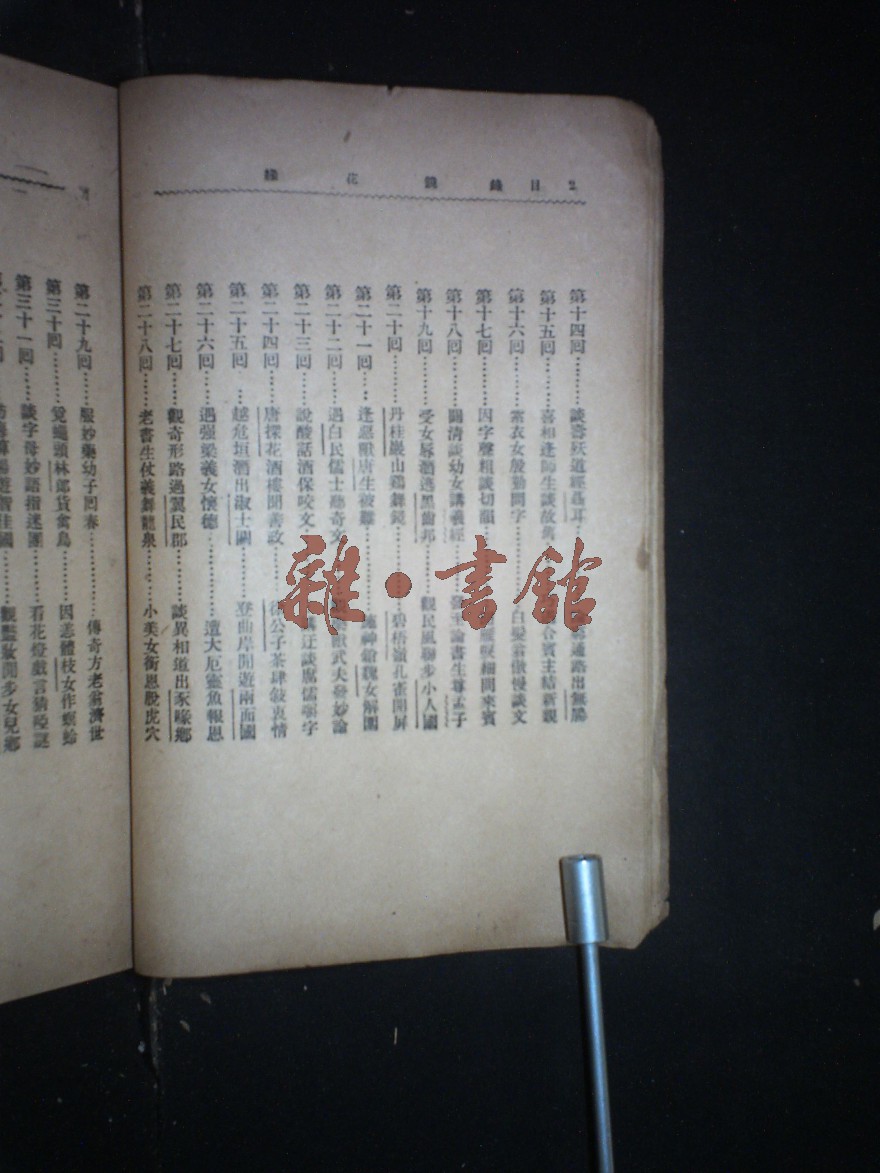 2 目錄 鏡花緣
第十四回……談壽夭道經聶耳……通路出無腸
第十五回……喜相逢師生談故舊……合賓主結新親
第十六回……紫衣女殷勤問字……白髮翁傲慢談文
第十七回……因字聲粗談切韻……雁唳細問來賓
第十八回……闢清談幼女講義經……論書生尊孟子
第十九回……受女辱潛逃黑齒邦……觀民風聯步小人國
第二十回……丹桂巖山鷄舞鏡……碧梧嶺孔雀開屏
第二十一回……逢惡獸唐生被難……施神鎗魏女解圍
第二十二回……遇白民儒士聽奇文……獸武夫發妙論
第二十三回……說酸話酒保咬文……迂談腐儒嚼字
第二十四回……唐探花酒樓聞善政……徐公子茶肆敍衷情
第二十五回……越危垣潛出淑士關……登曲岸閒遊兩面國
第二十六回……遇强梁義女懷德……遭大厄靈魚報恩
第二十七回……觀奇形路過翼民郡……談異相道出豕喙鄉
第二十八回……老書生仗義舞龍泉……小美女銜恩脫虎穴
第二十九回……服妙藥幼子回春……傳奇方老翁濟世
第三十回……覓蠅頭林郎貨禽鳥……因恙體枝女作螟蛉
第三十一回……談字母妙語指迷團……看花燈戲言猜啞謎
觀豔妝閒步女兒鄉
雜·書館